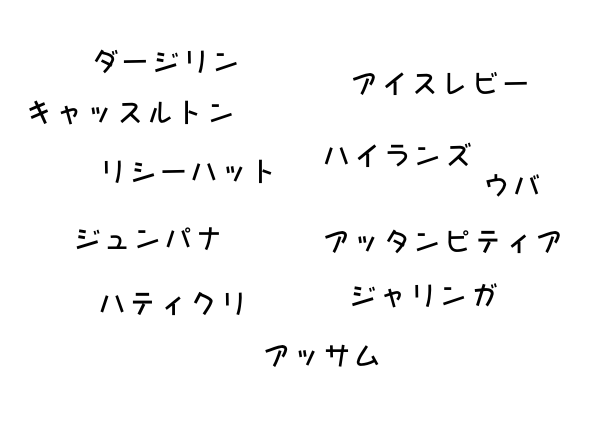 ダージリン
アイスレビー
キャッスルトン
ハイランズ
リシーハット
ウバ
ジュンパナ
アッタンピティア
ハティクリ
ジャリンガ
アッサム